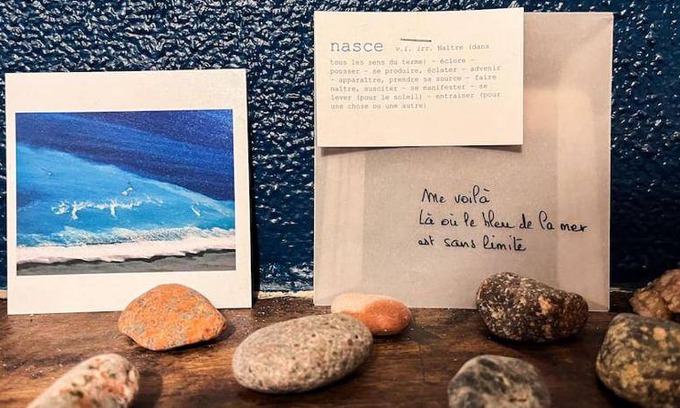 nasce v.i. irr. Naître (dans
tous les sens du terme) - éclore -
pousser - se produire, éclater - advenir
- apparaître, prendre sa source - faire
naître, susciter - se manifester - se
lever (pour le soleil) - entraîner (pour
une chose ou une autre)
me voilà
Là où le bleu de la mer
est sans limite